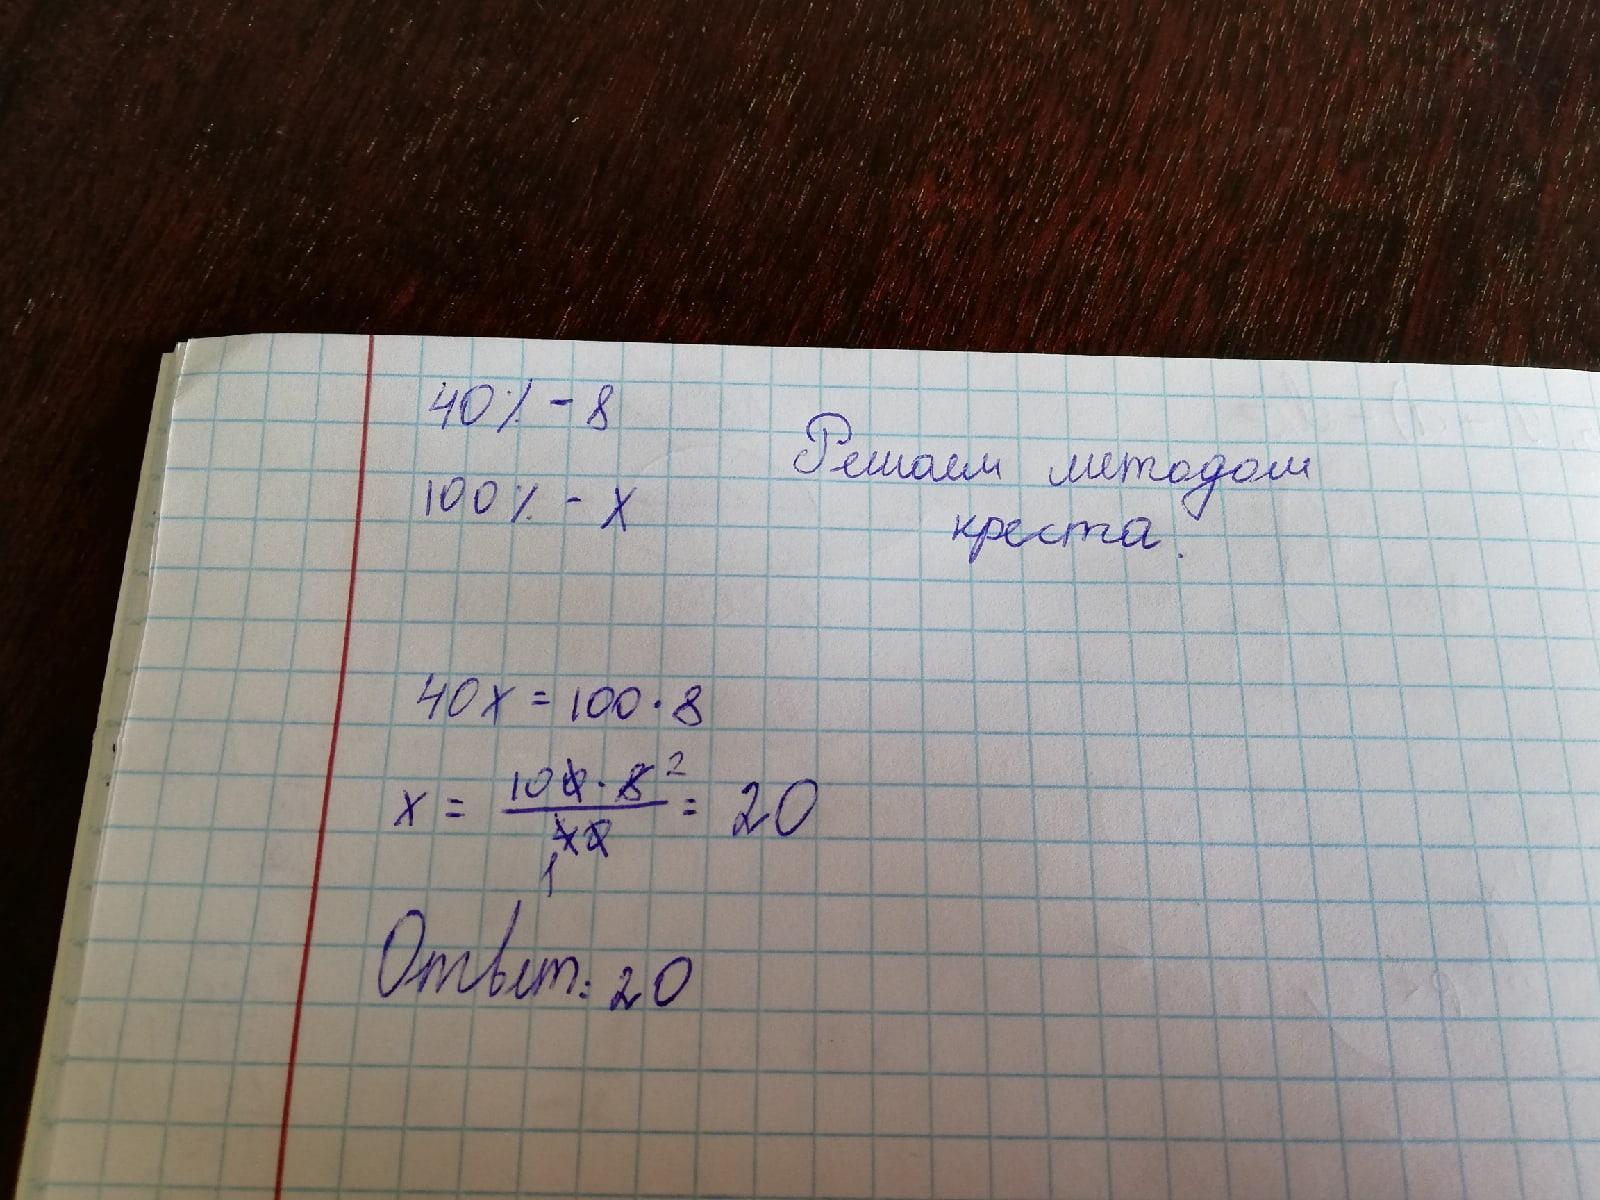 40% - 8
100% - x
Решаем методом
креста.
40x = 100 · 8
x = 100 · 8 2 / 40 1 = 20
Ответ: 20